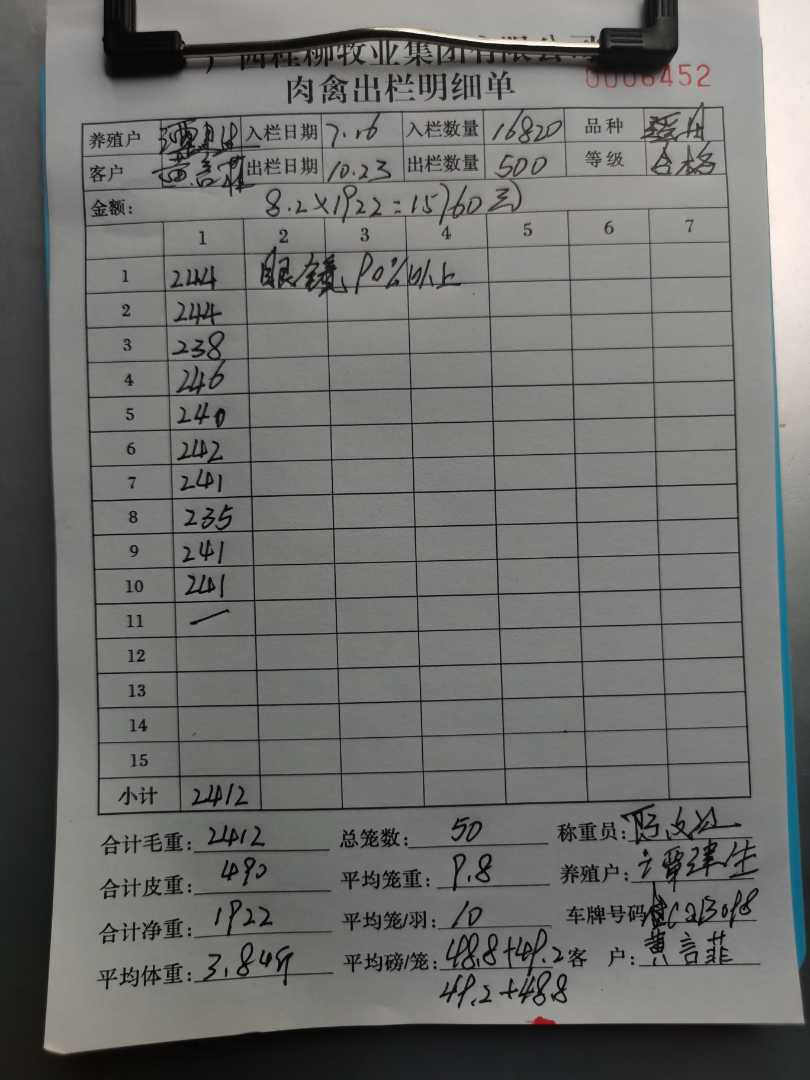 广西桂柳牧业集团有限公司
肉禽出栏明细单 0006452
养殖户 入栏日期 7.26 入栏数量 16820 品种
客户 黄言菲 出栏日期 10.23 出栏数量 500 等级 合格
金额: 8.2×1922=15760元
1 2 3 4 5 6 7
1 244 眼镜90%以上
2 244
3 238
4 246
5 240
6 242
7 241
8 235
9 241
10 241
11 —
12
13
14
15
小计 2412
合计毛重: 2412 总笼数: 50 称重员:
合计皮重: 490 平均笼重: 9.8 养殖户: 覃建生
合计净重: 1922 平均笼/羽: 10 车牌号码
平均体重: 3.84斤 平均磅/笼: 48.8+49.2 客 户: 黄言菲
49.2+48.8